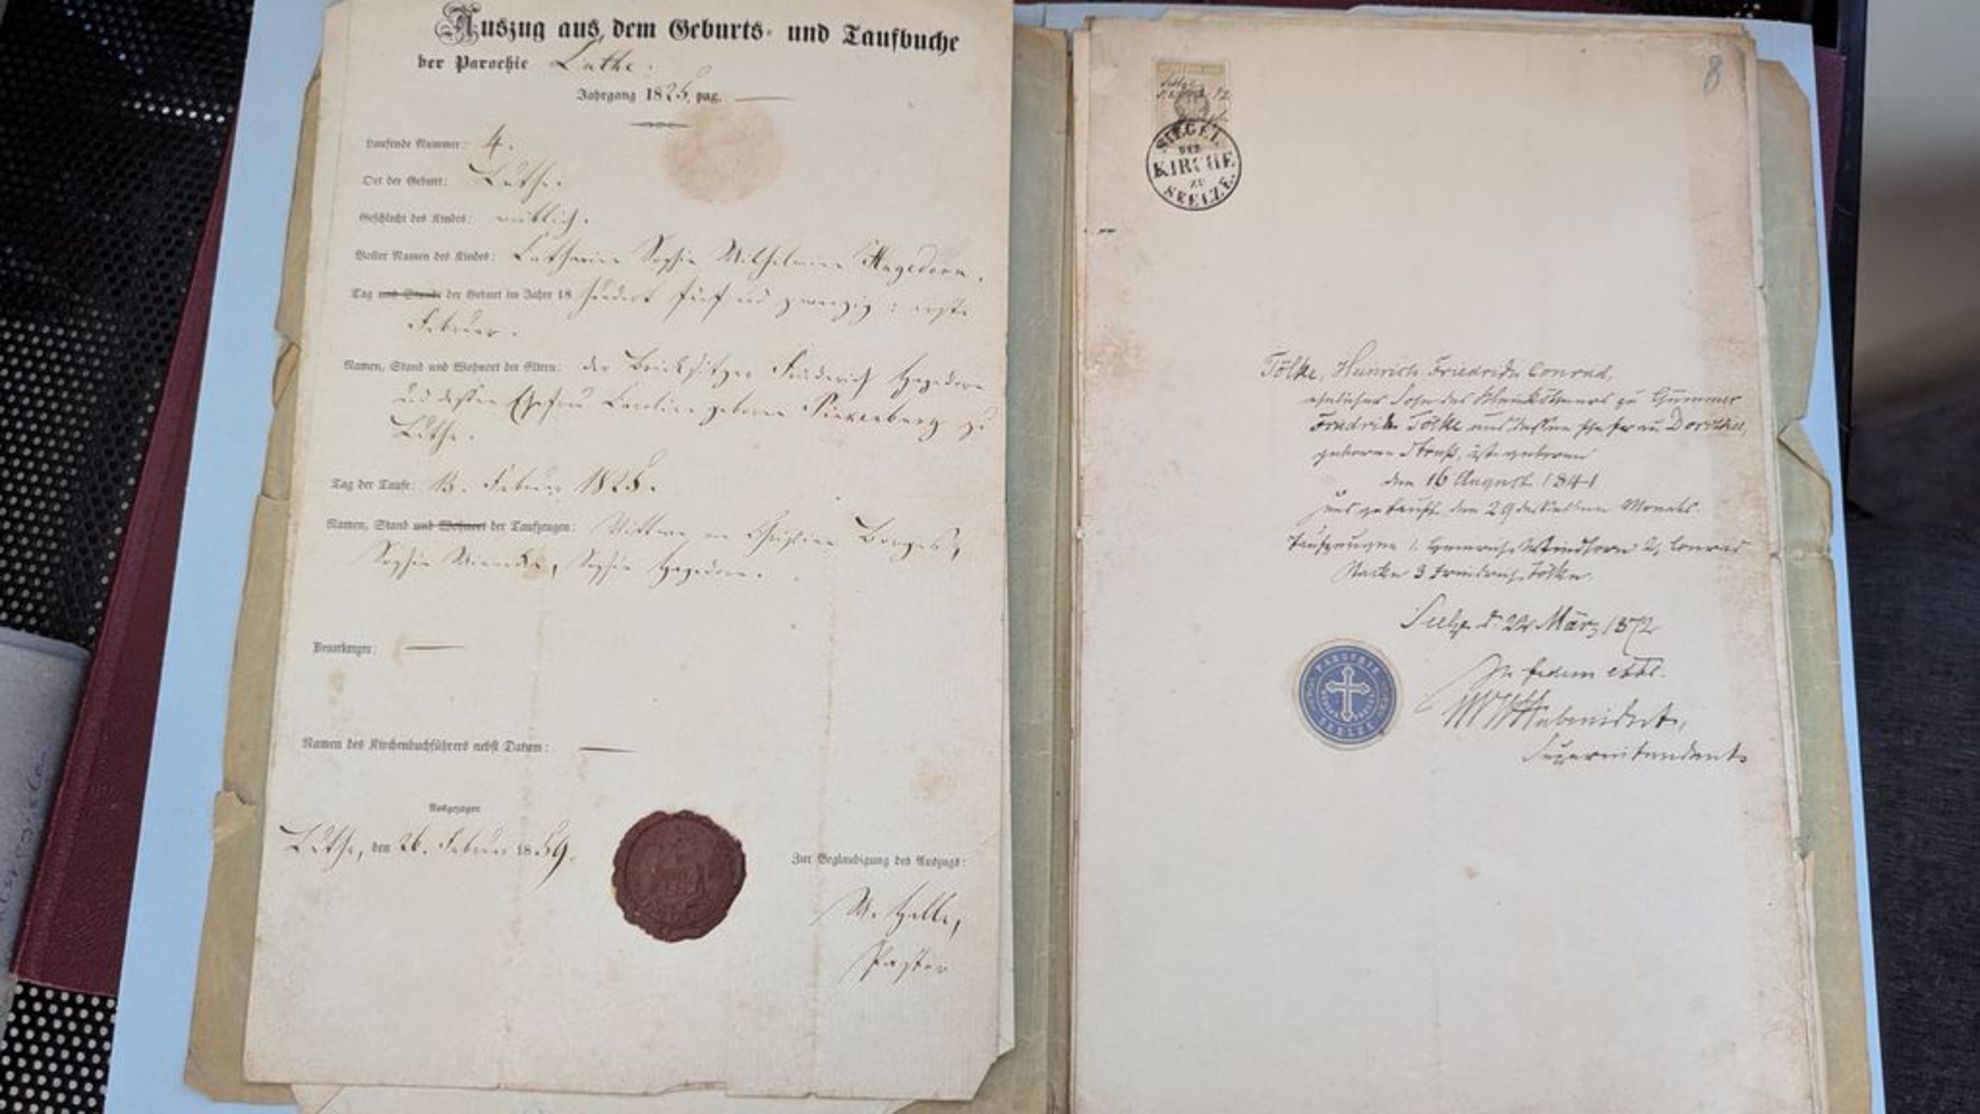 Auszug aus dem Geburts- und Taufbuche
der Parochie Luthe.
Jahrgang 1825, pag. —
Laufende Nummer: 4.
Ort der Geburt: Luthe.
Geschlecht des Kindes: weiblich.
Voller Namen des Kindes: Catharine Sophie Wilhelmine Hagedorn.
Tag und Stunde der Geburt im Jahre 18 hundert fünf und zwanzig: erste
Februar.
Namen, Stand und Wohnort der Eltern: der Brinksitzer Friederich Hagedorn
und dessen Ehefrau Caroline geborne zu
Luthe.
Tag der Taufe: 13. Februar 1825.
Namen, Stand und Wohnort der Taufzeugen: Wittwe Borges,
Sophie, Sophie Hagedorn.
Bemerkungen: —
Namen des Kirchenbuchführers nebst Datum: —
Ausgezogen
Luthe, den 26. Februar 1859.
Zur Beglaubigung des Auszugs:
Pastor
8
SIEGEL
DER
KIRCHE
ZU
SEELZE
Tölke, Heinrich Friedrich Conrad,
ehelicher Sohn des zu Gümmer
Friedrich Tölke und dessen Ehefrau Dorothee,
geborne Struß, ist geboren
den 16 August 1841
und getauft den 29 desselben Monats.
Taufzeugen 1. Heinrich 2, Conrad
3 Friedrich Tölke.
Seelze d. 22 März 1872
In fidem
Superintendent
PAROCHIE
SEELZE